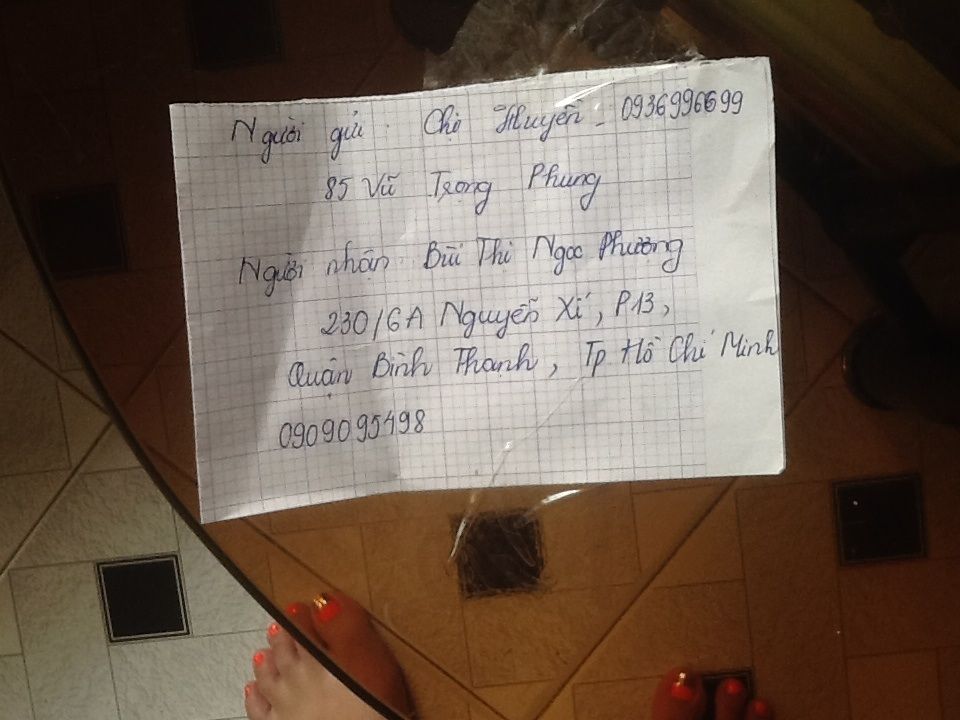 Người gửi : Chị Huyền - 0936996699
85 Vũ Trọng Phung
Người nhận : Bùi Thị Ngọc Phương
230/6A Nguyễn Xí, P13,
Quận Bình Thạnh, Tp Hồ Chí Minh
0909095498